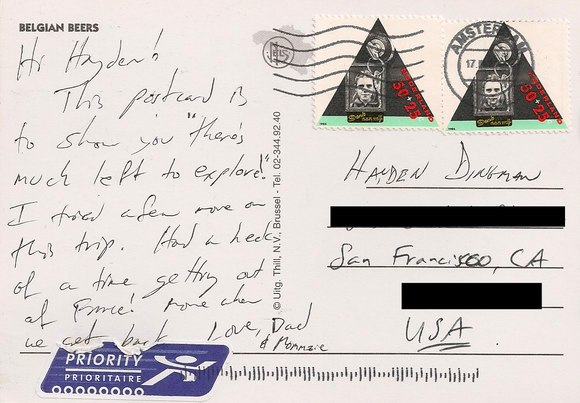 BELGIAN BEERS
Hi Hayden!
This postcard is
to show you "there's
much left to explore!"
I tried a few more on
this trip. Had a heck
of a time getting out
of France! more when
we get back Love, Dad
& Mommzie
PRIORITY
PRIORITAIRE
© Uitg. Thill, N.V., Brussel - Tel. 02-344.92.40
AMSTERDAM
17.
NEDERLAND
50+25
NEDERLAND
50+25
HAYDEN DINGMAN
San Francisco, CA
USA